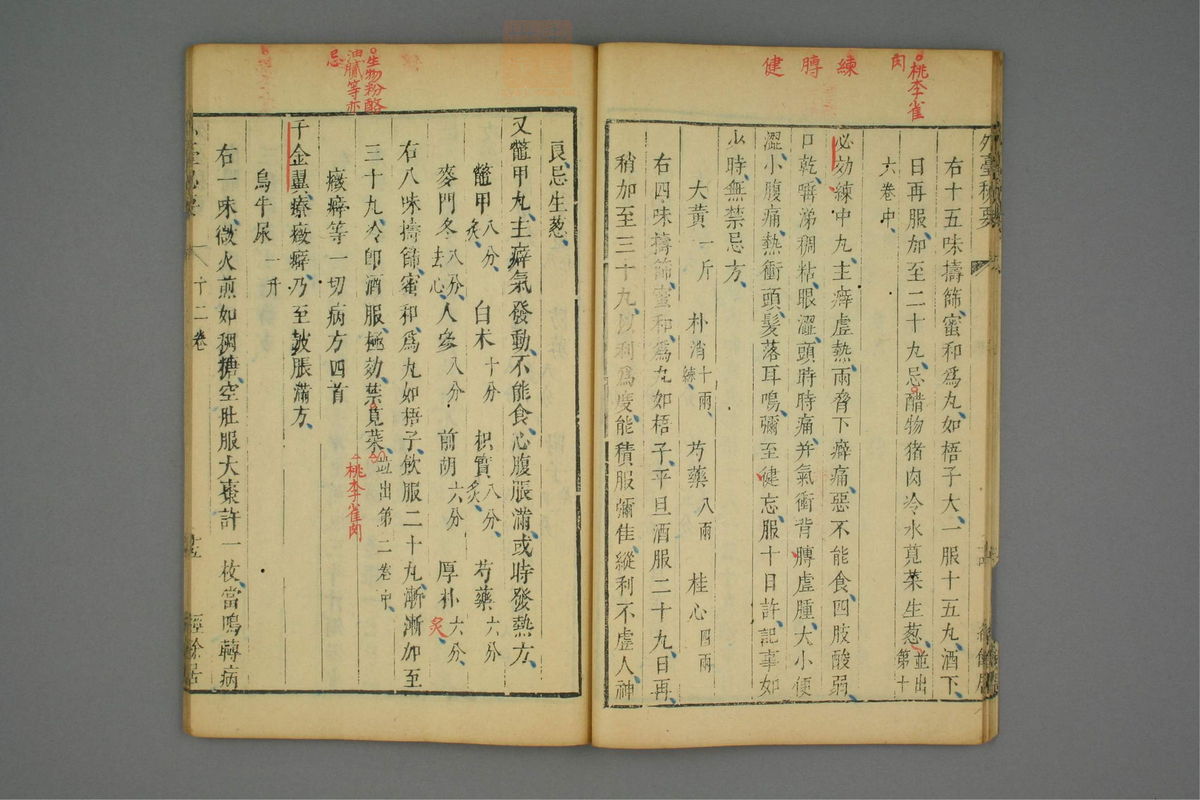 桃李雀
肉
練
膊
健
外臺秘要
右十五味擣篩蜜和爲丸如梧子大一服十五丸酒下
日再服加至二十丸忌醋物猪肉冷水莧菜生葱並出第十
六卷中
必効練中丸主癖虚熱兩脅下癖痛惡不能食四肢酸弱
口乾嚼涕稠粘眼澀頭時時痛并氣衝背膊虚腫大小便
澀小腹痛熱衝頭髮落耳鳴彌至健忘服十日許記事如
少時無禁忌方
大黄一斤 朴消十兩練 芍藥八兩 桂心四兩
右四味擣篩蜜和爲丸如梧子平旦酒服二十丸日再
稍加至三十丸以利爲度能積服彌佳縱利不虚人神
生物粉酪
油膩等亦
忌
良忌生葱
又鼈甲丸主癖氣發動不能食心腹脹滿或時發熱方
鼈甲八分炙 白术十分 枳實八分炙 芍藥六分
麥門冬八分去心 人參八分 前胡六分 厚朴六分炙
右八味擣篩蜜和爲丸如梧子飲服二十丸漸漸加至
三十丸冷卽酒服極効禁莧菜並出第二卷中
桃李雀肉
癥癖等一切病方四首
千金翼療癥癖乃至鼓脹滿方
烏牛尿一升
右一味微火煎如稠糖空肚服大棗許一枚當鳴轉病
十二卷
經餘居